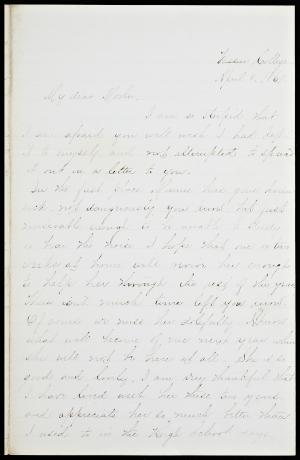 Vassar College
April 8. 186
My dear Mother,
I am so stupid that
I am afraid you will wish I had kept
it to myself and not attempted to spread
it out in a letter to you.
In the first place has gone home
sick, not dangerously you know but just
miserable enough to be unable to study
or bear the noise. I hope that one or two
weeks at home will renew her enough
to help her through the rest of the year
There isn't much time left you know.
Of course we miss her dolefully. Know
what will become of me next year when
she will not be here at all. She is so
good and lovely. I am very thankful that
I have lived with her these two years,
and appreciate her so much better than
I used to in the High School days.